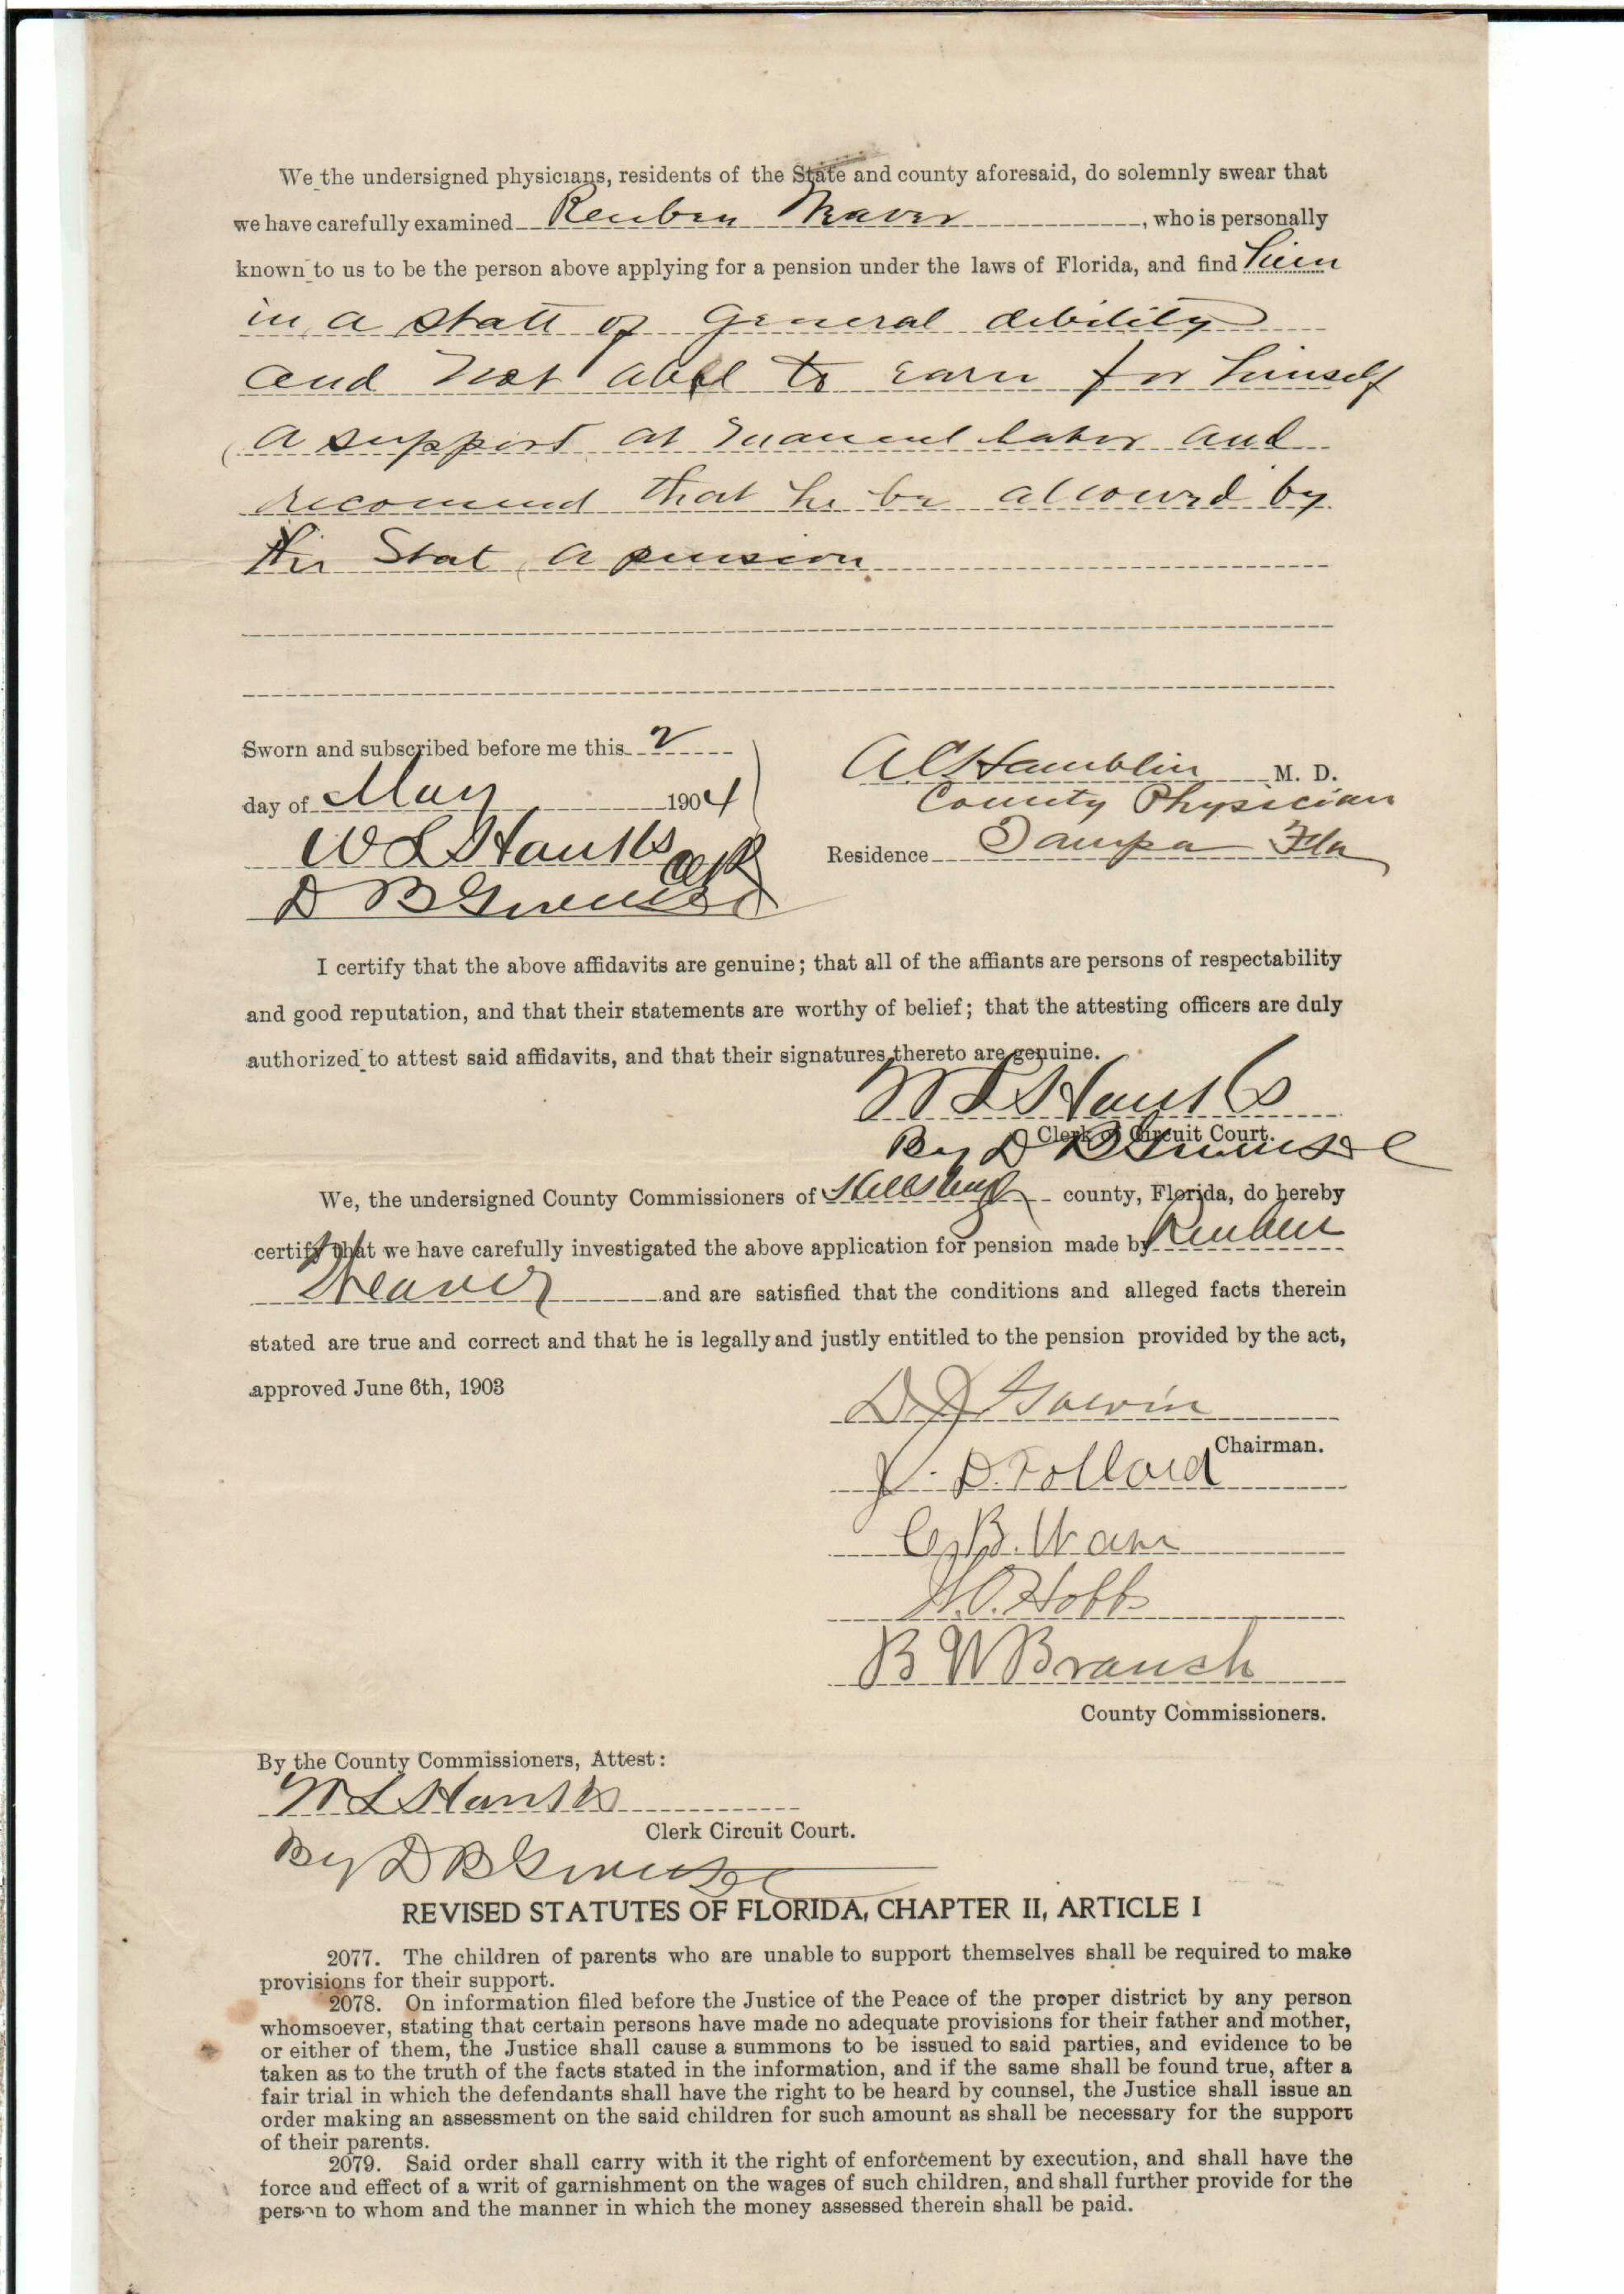 We the undersigned physicians, residents of the State and county aforesaid, do solemnly swear that
we have carefully examined Reuben Weaver, who is personally
known to us to be the person above applying for a pension under the laws of Florida, and find him
in a state of General debility
and not able to earn for himself
a support at manuel labor and
recomend that he be allowed by
the Stat a pension
Sworn and subscribed before me this 2
day of May 1904
A C Hamblin M. D.
County Physician
W L Hanks Clk
Residence Tampa Fla
D B
I certify that the above affidavits are genuine; that all of the affiants are persons of respectability
and good reputation, and that their statements are worthy of belief; that the attesting officers are duly
authorized to attest said affidavits, and that their signatures thereto are genuine.
W L Hanks
Clerk of Circuit Court.
By D B
We, the undersigned County Commissioners of county, Florida, do hereby
certify that we have carefully investigated the above application for pension made by Reuben
Weaver and are satisfied that the conditions and alleged facts therein
stated are true and correct and that he is legally and justly entitled to the pension provided by the act,
approved June 6th, 1903
Chairman.
B. 
W.O. Hobbs
B W Branch
County Commissioners.
By the County Commissioners, Attest:
W L Hanks
Clerk Circuit Court.
By D B
REVISED STATUTES OF FLORIDA, CHAPTER II, ARTICLE I
2077. The children of parents who are unable to support themselves shall be required to make
provisions for their support.
2078. On information filed before the Justice of the Peace of the proper district by any person
whomsoever, stating that certain persons have made no adequate provisions for their father and mother,
or either of them, the Justice shall cause a summons to be issued to said parties, and evidence to be
taken as to the truth of the facts stated in the information, and if the same shall be found true, after a
fair trial in which the defendants shall have the right to be heard by counsel, the Justice shall issue an
order making an assessment on the said children for such amount as shall be necessary for the support
of their parents.
2079. Said order shall carry with it the right of enforcement by execution, and shall have the
force and effect of a writ of garnishment on the wages of such children, and shall further provide for the
person to whom and the manner in which the money assessed therein shall be paid.